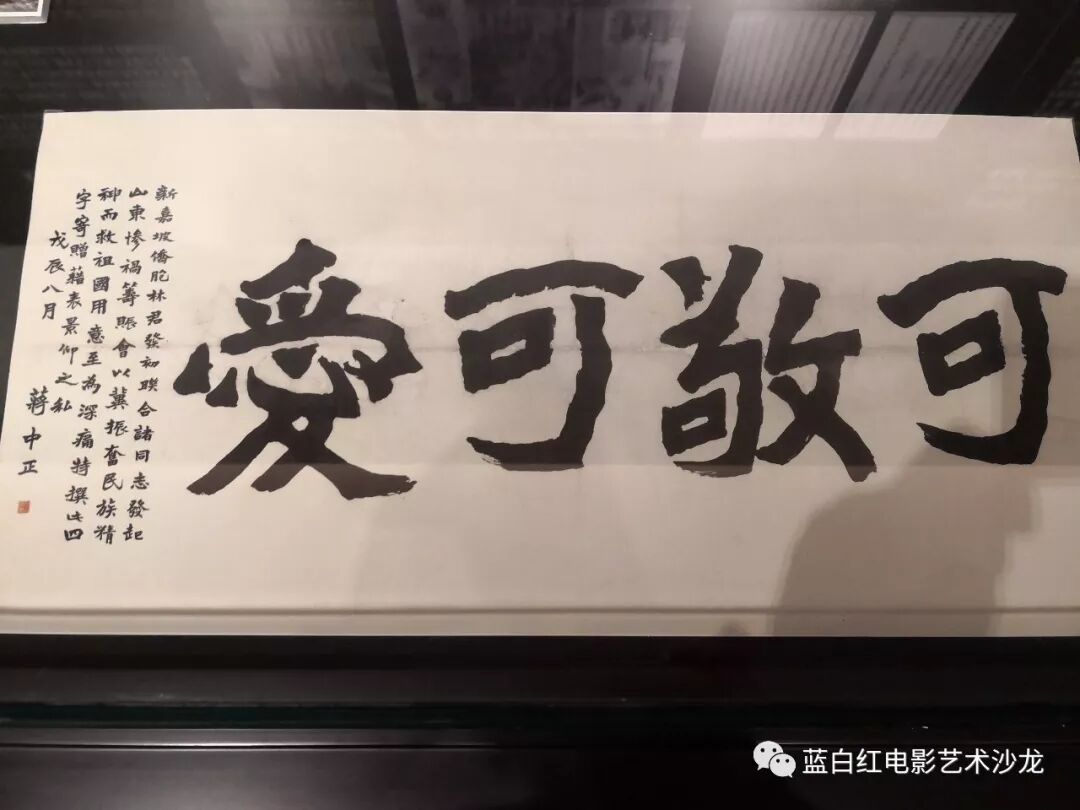 可敬可愛
新嘉坡僑胞林君發初聯合諸同志發起
山東慘禍籌賑會以冀振奮民族精
神而救祖國用意至為深痛特撰此四
字寄贈藉表景仰之私
戊辰八月
蔣中正
蓝白红电影艺术沙龙